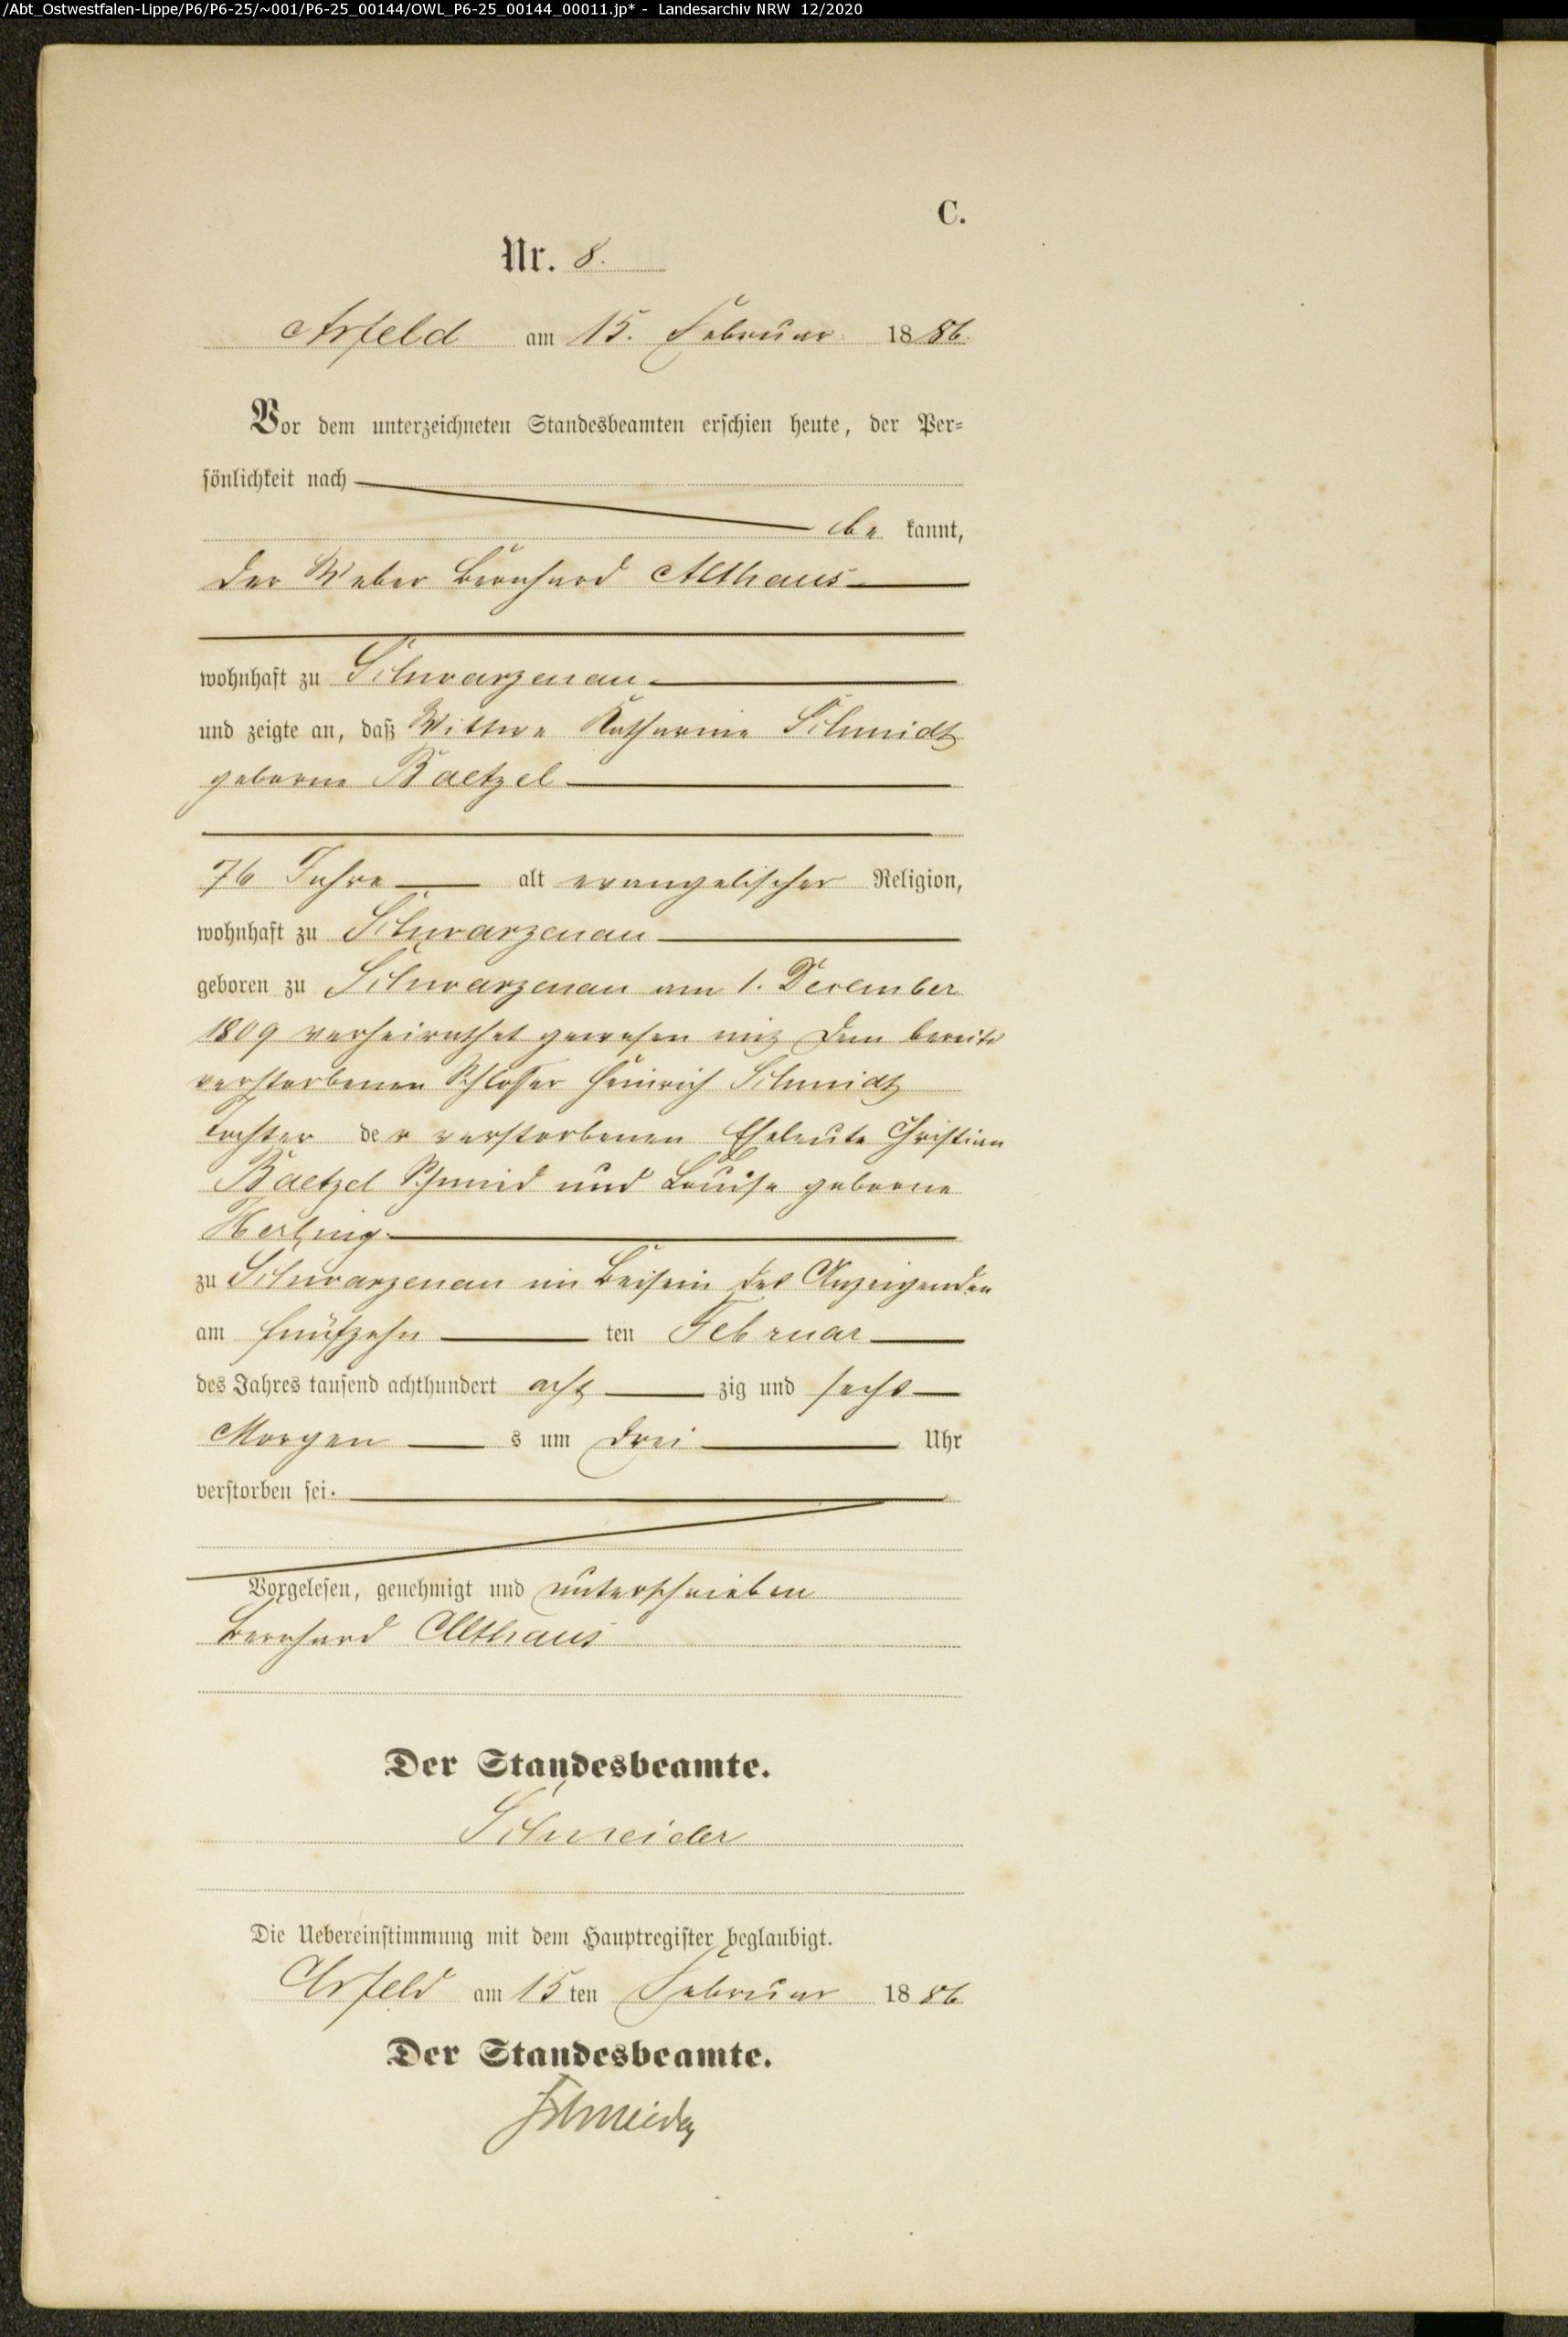 /Abt_Ostwestfalen-Lippe/P6/P6-25/~001/P6-25_00144/OWL_P6-25_00144_00011.jp* - Landesarchiv NRW 12/2020
C.
Nr. 8.
Arfeld am 15. Februar 1886
Vor dem unterzeichneten Standesbeamten erschien heute, der Per-
sönlichkeit nach
be kannt,
der Weber Bernhard Althaus
wohnhaft zu Schwarzenau
und zeigte an, daß Wittwe Katharine Schmidt
geborne Baetzel
76 Jahre alt evangelischer Religion,
wohnhaft zu Schwarzenau
geboren zu Schwarzenau am 1. December
1809 verheirathet gewesen mit dem bereits
verstorbenen Schlosser Heinrich Schmidt
Tochter der verstorbenen Eheleute Christian
Baetzel Schmid und Louise geborne
zu Schwarzenau im Beisein des Anzeigenden
am fünfzehn ten Februar
des Jahres tausend achthundert acht zig und sechs
Morgen s um drei Uhr
verstorben sei.
Vorgelesen, genehmigt und unterschrieben
Bernhard Althaus
Der Standesbeamte.
Schneider
Die Uebereinstimmung mit dem Hauptregister beglaubigt.
Arfeld am 15 ten Februar 1886
Der Standesbeamte.
Schneider